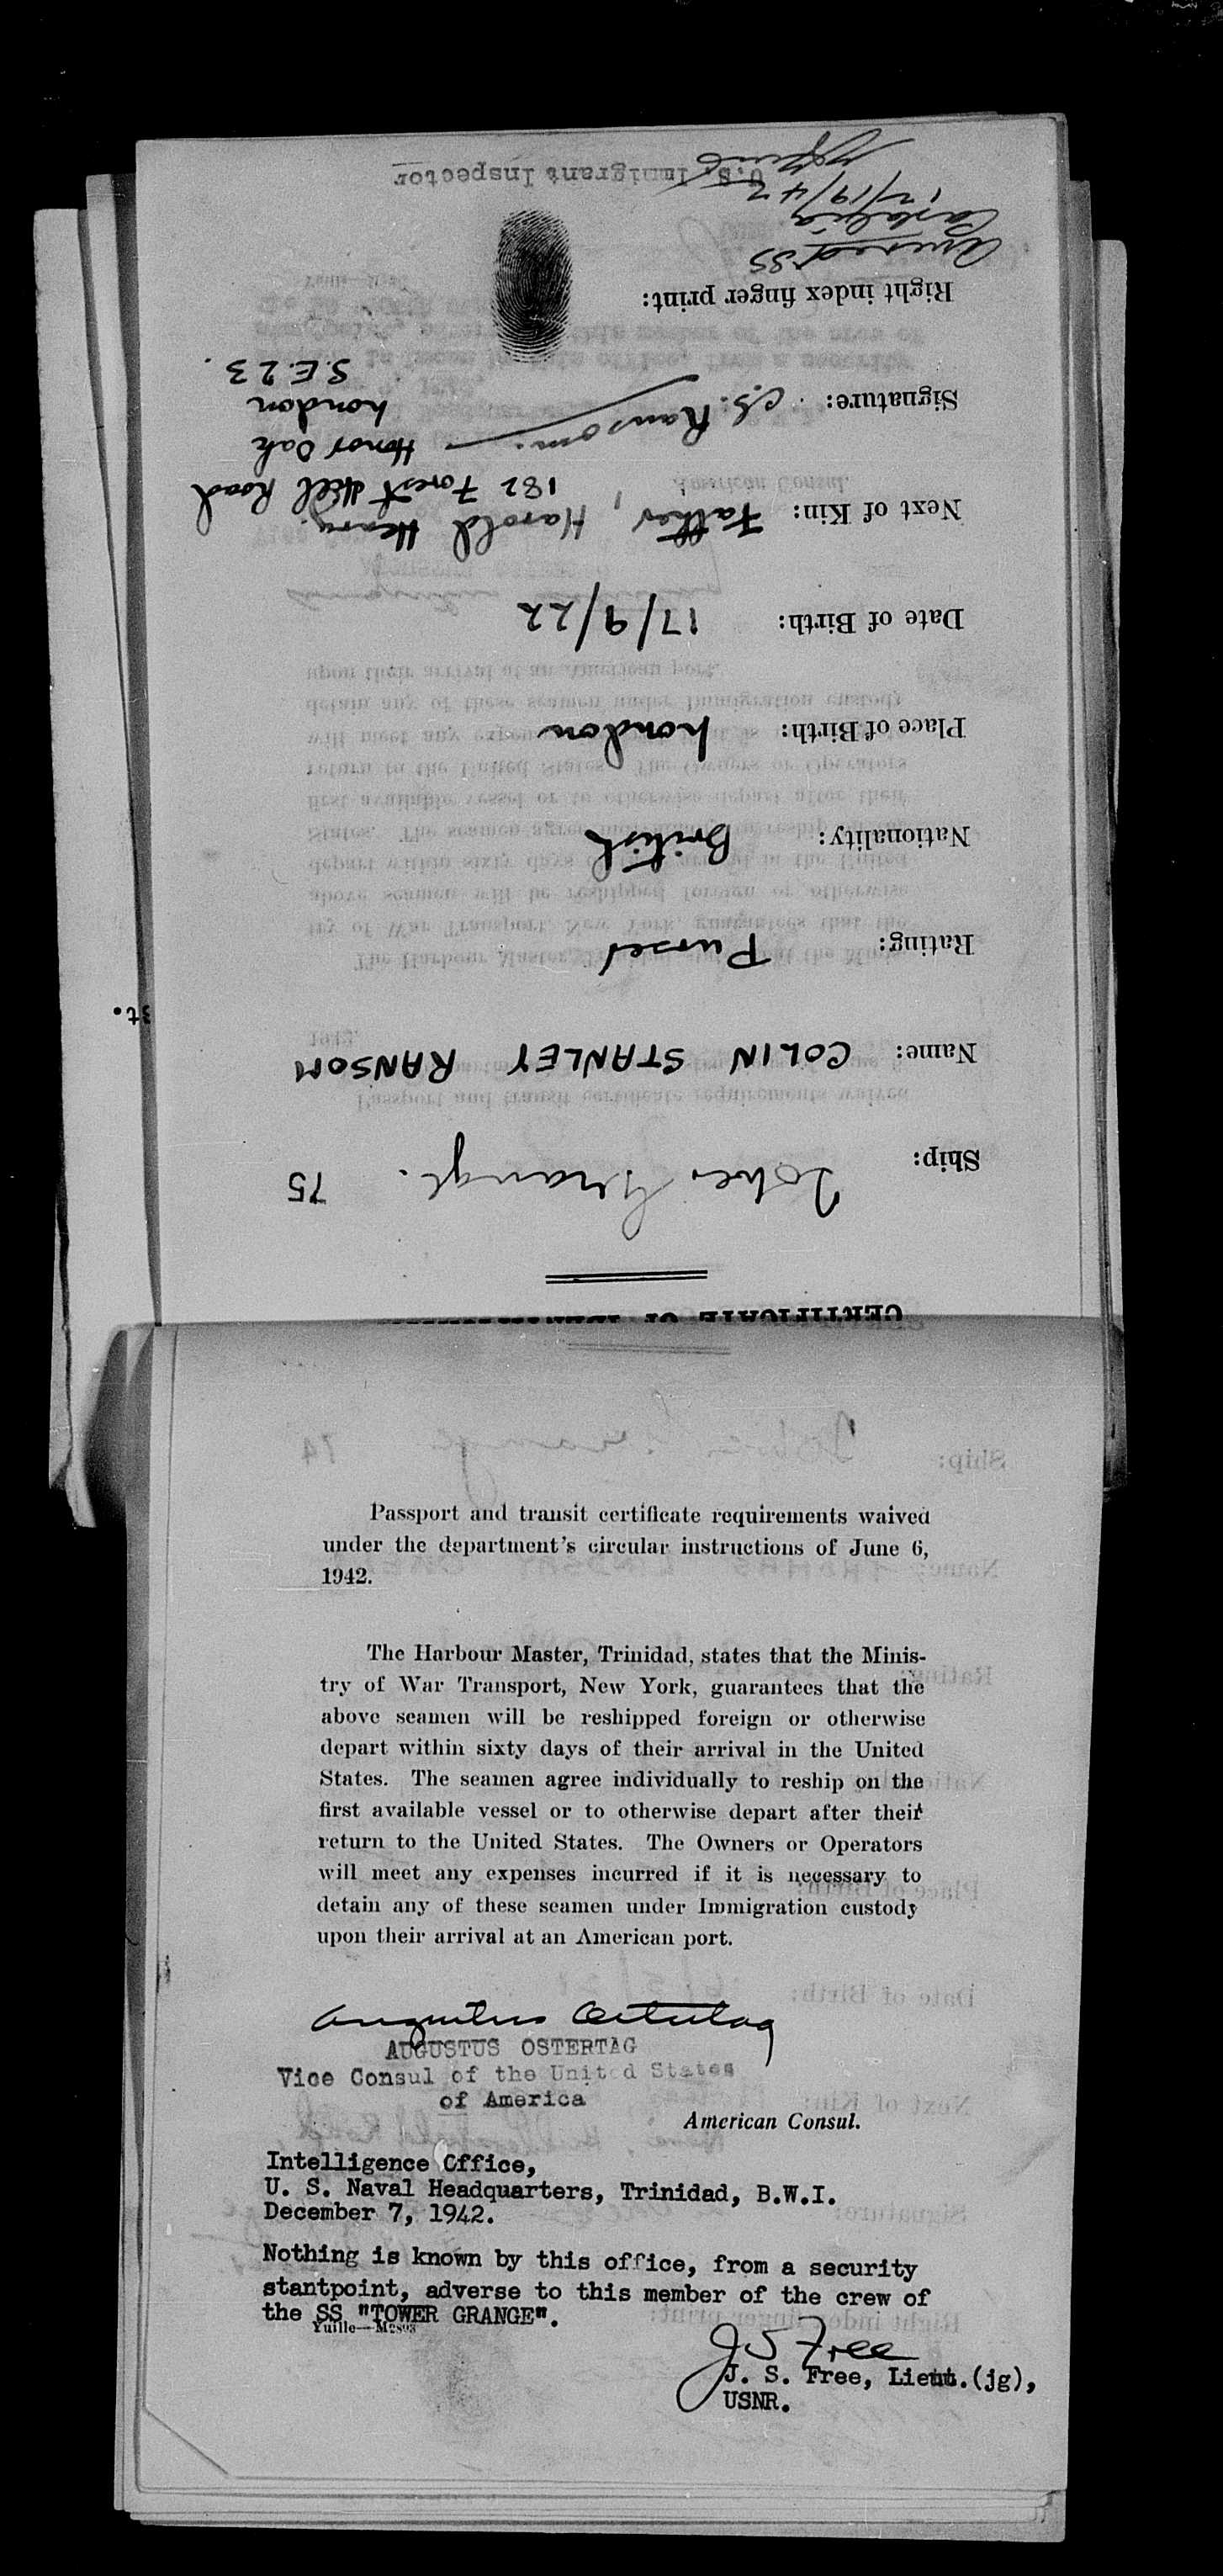 CERTIFICATE OF
Ship: Tower Grange. 75
Name: COLIN STANLEY RANSOM
Rating: Purser
Nationality: British
Place of Birth: London
Date of Birth: 17/9/22
Next of Kin: Father, Harold Henry.
182 Forest Hill Road
Honor Oak
London
S.E.23.
Signature: C.S. Ransom.
Right index finger print:
SS
Castalia
12/19/42
U.S. Immigrant Inspector
st.
Passport and transit certificate requirements waived
under the department's circular instructions of June 6,
1942.
The Harbour Master, Trinidad, states that the Minis-
try of War Transport, New York, guarantees that the
above seamen will be reshipped foreign or otherwise
depart within sixty days of their arrival in the United
States. The seamen agree individually to reship on the
first available vessel or to otherwise depart after their
return to the United States. The Owners or Operators
will meet any expenses incurred if it is necessary to
detain any of these seamen under Immigration custody
upon their arrival at an American port.
Augustus Ostertag
AUGUSTUS OSTERTAG
Vice Consul of the United States
of America
American Consul.
Intelligence Office,
U. S. Naval Headquarters, Trinidad, B.W.I.
December 7, 1942.
Nothing is known by this office, from a security
stantpoint, adverse to this member of the crew of
the SS "TOWER GRANGE".
J S Free
J. S. Free, Lieut.(jg),
USNR.